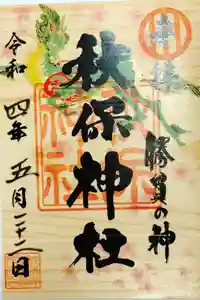 奉拝
勝負の神
秋保神社
令和四年五月二十二日